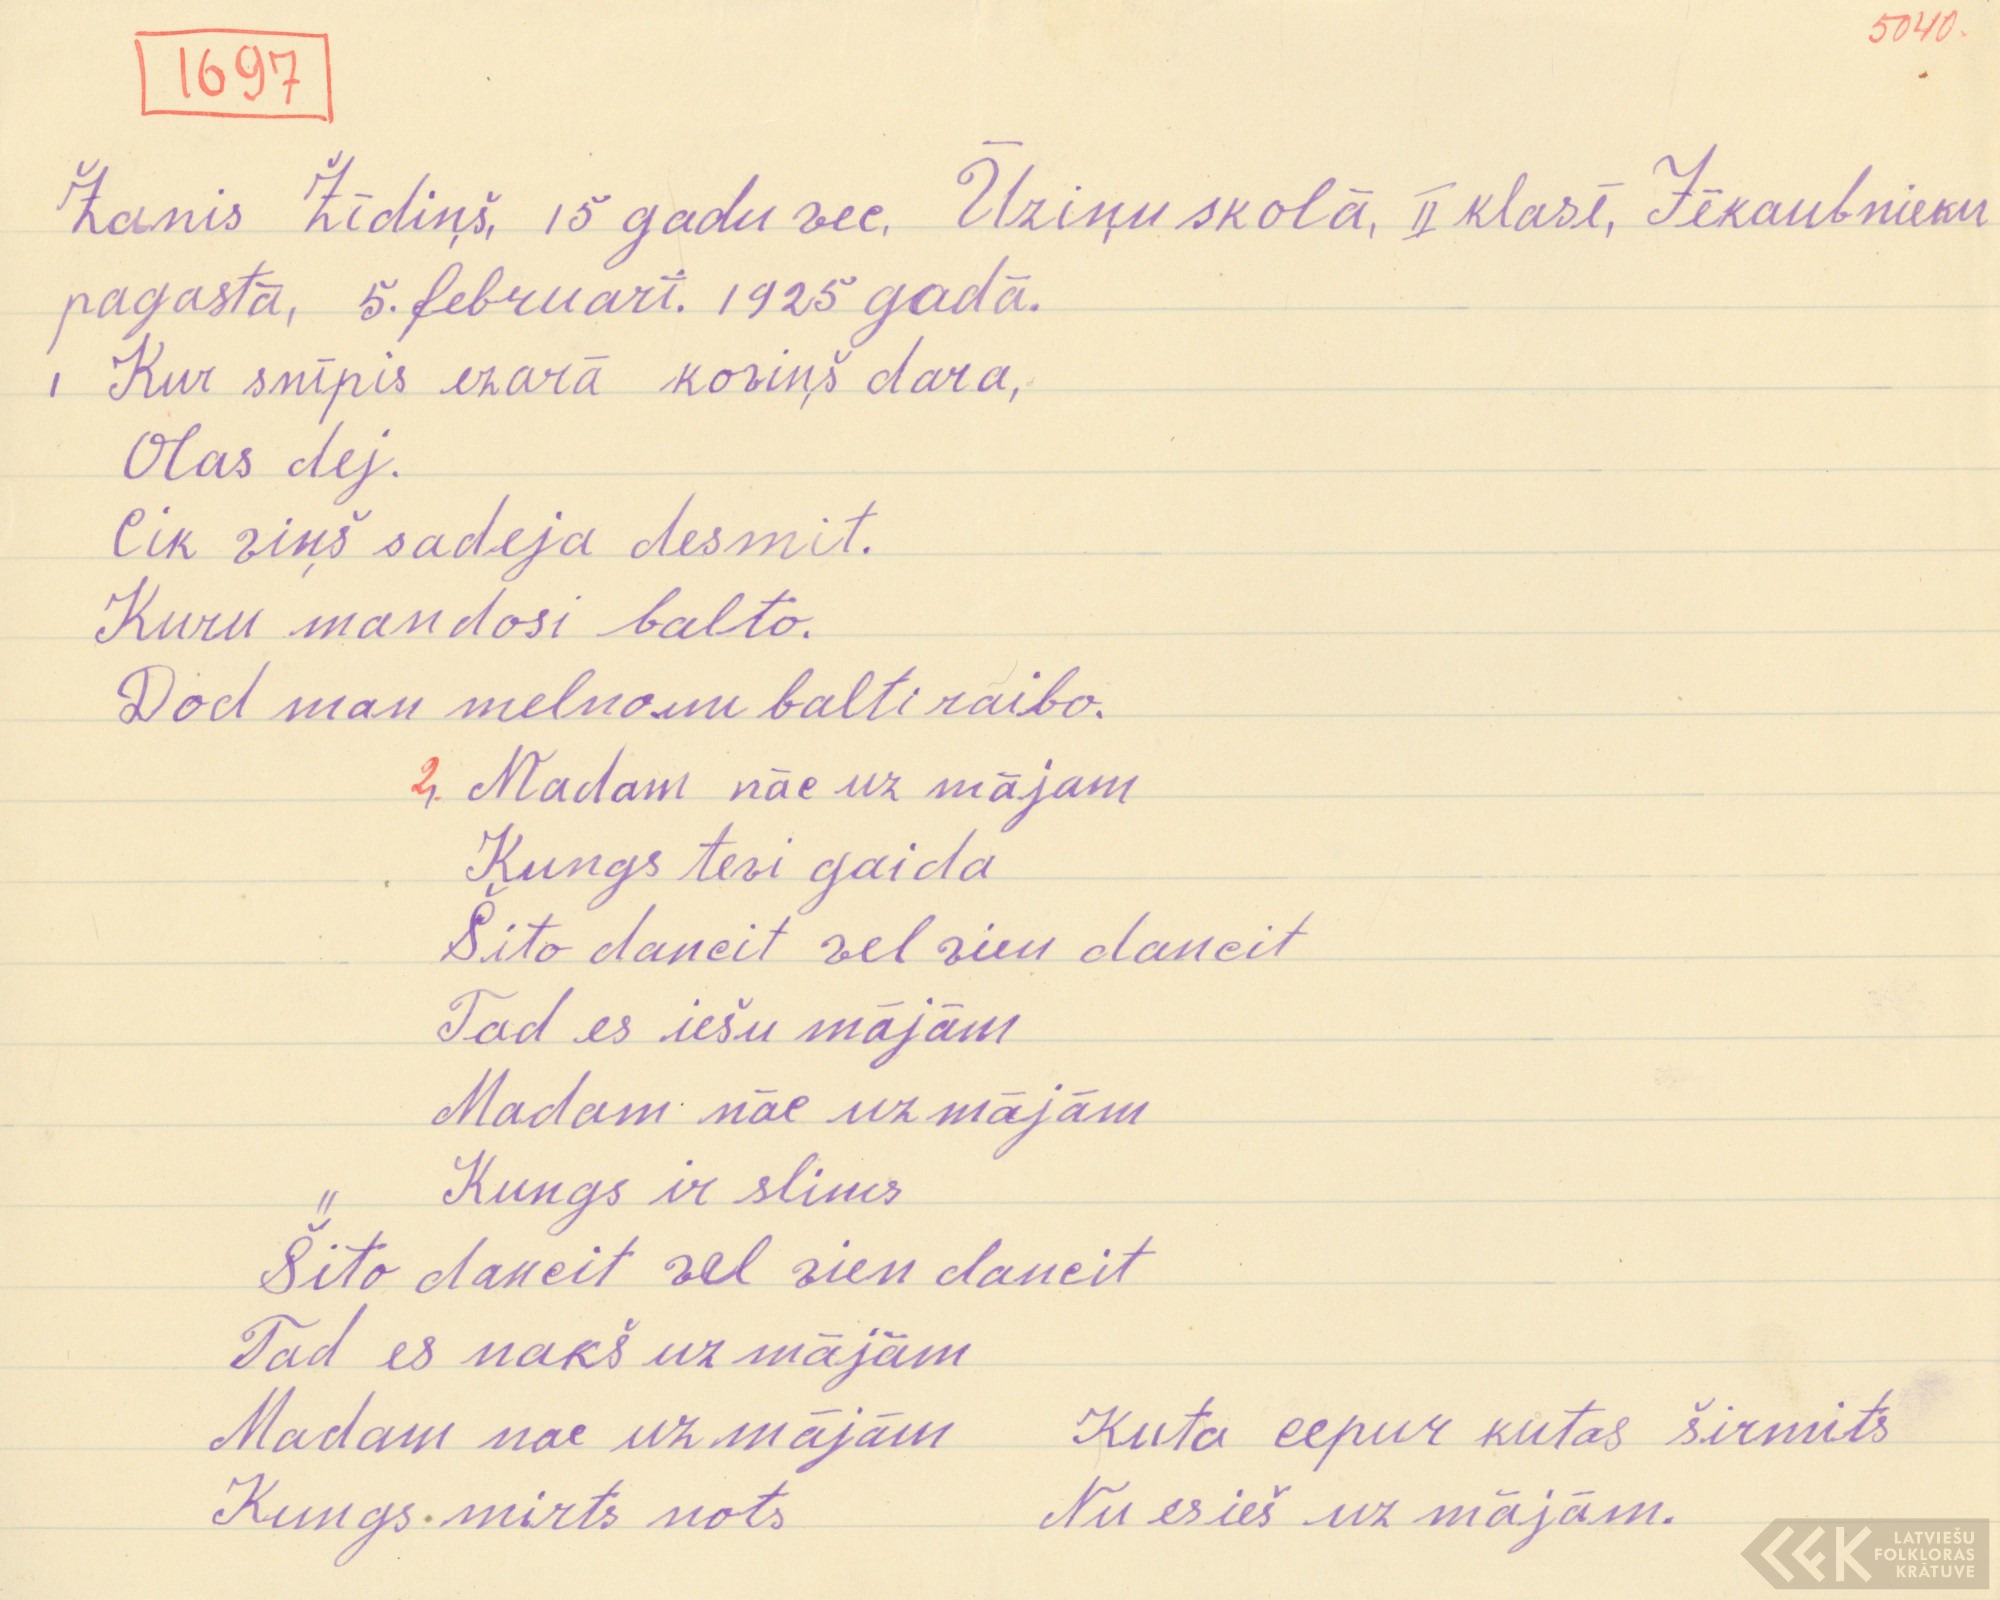 1697
5040.
Žanis Žīdiņš, 15 gadu vec. Ūziņu skolā, II klasē, Jēkaubnieku
pagastā, 5. februarī. 1925 gadā.
1 Kur snīpis ezarā koviņš dara,
Olas dej.
Cik viņš sadeja desmit.
Kuru man dosi balto.
Dod man melno un balti raibo.
2, Madam nāc uz mājam
Kungs tevi gaida
Šito dancit vel vien dancit
Tad es iešu mājām
Madam nāc uz mājām
" Kungs ir slims
Šito dancit vel vien dancit
Tad es nakš uz mājām
Madam nac uz mājām
Kungs mirts nots
Kuta cepur kutas širmits
Nu es ieš uz mājām.
LATVIEŠU
FOLKLORAS
KRĀTUVE